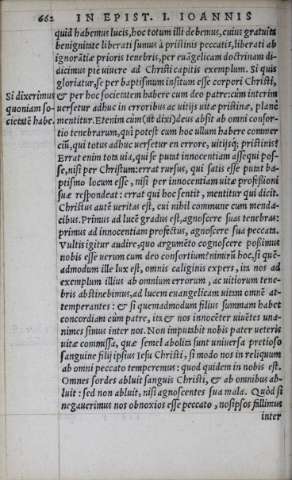 662 IN EPIST. I. IOANNIS
quid habemus lucis, hoc totum illi debemus, cuius gratuita
benignitate liberati sumus à pristinis peccatis, liberati ab
ignorãtiæ prioris tenebris, per euãgelicam doctrinam di-
dicimus piè uiuere ad Christi capitis exemplum. Si quis
gloriatur, se per baptismum insitum esse corpori Christi,
Si dixerimus
quoniam so-
cietatē habe.
& per hoc societatem habere cum deo patre: cùm interim
uersetur adhuc in erroribus ac uitijs uitæ pristinæ, planè
mentitur. Etenim cùm (ut dixi) deus absit ab omni consor-
tio tenebrarum, quî potest cum hoc ullum habere commer
cium, qui totus adhuc uersetur in errore, uitijsq; pristinis?
Errat enim tota uia, qui se putat innocentiam assequi pos-
se, nisi per Christum: errat rursus, qui satis esse putat ba-
ptismo locum esse, nisi per innocentiam uitæ professioni
suæ respondeat: errat qui hoc sentit, mentitur qui dicit.
Christus autē ueritas est, cui nihil commune cum menda-
cibus. Primus ad lucē gradus est, agnoscere suas tenebras:
primus ad innocentiam profectus, agnoscere sua peccata.
Vultis igitur audire, quo argumēto cognoscere possimus
nobis esse uerum cum deo consortium? nimirū hoc, si quē-
admodum ille lux est, omnis caliginis expers, ita nos ad
exemplum illius ab omnium errorum, ac uitiorum tene-
bris abstinebimus, ad lucem euangelicam uitam omnē at-
temperantes: & si quemadmodum filius summam habet
concordiam cum patre, ita & nos innocēter uiuētes una-
nimes simus inter nos. Non imputabit nobis pater ueteris
uitæ commissa, quæ semel aboleuit sunt uniuersa pretioso
sanguine filij ipsius Iesu Christi, si modo nos in reliquum
ab omni peccato temperemus: quod quidem in nobis est.
Omnes sordes abluit sanguis Christi, & ab omnibus ab-
luit: sed non abluit, nisi agnoscentes sua mala. Quòd si
negauerimus nos obnoxios esse peccato, nosipsos fallimus
inter